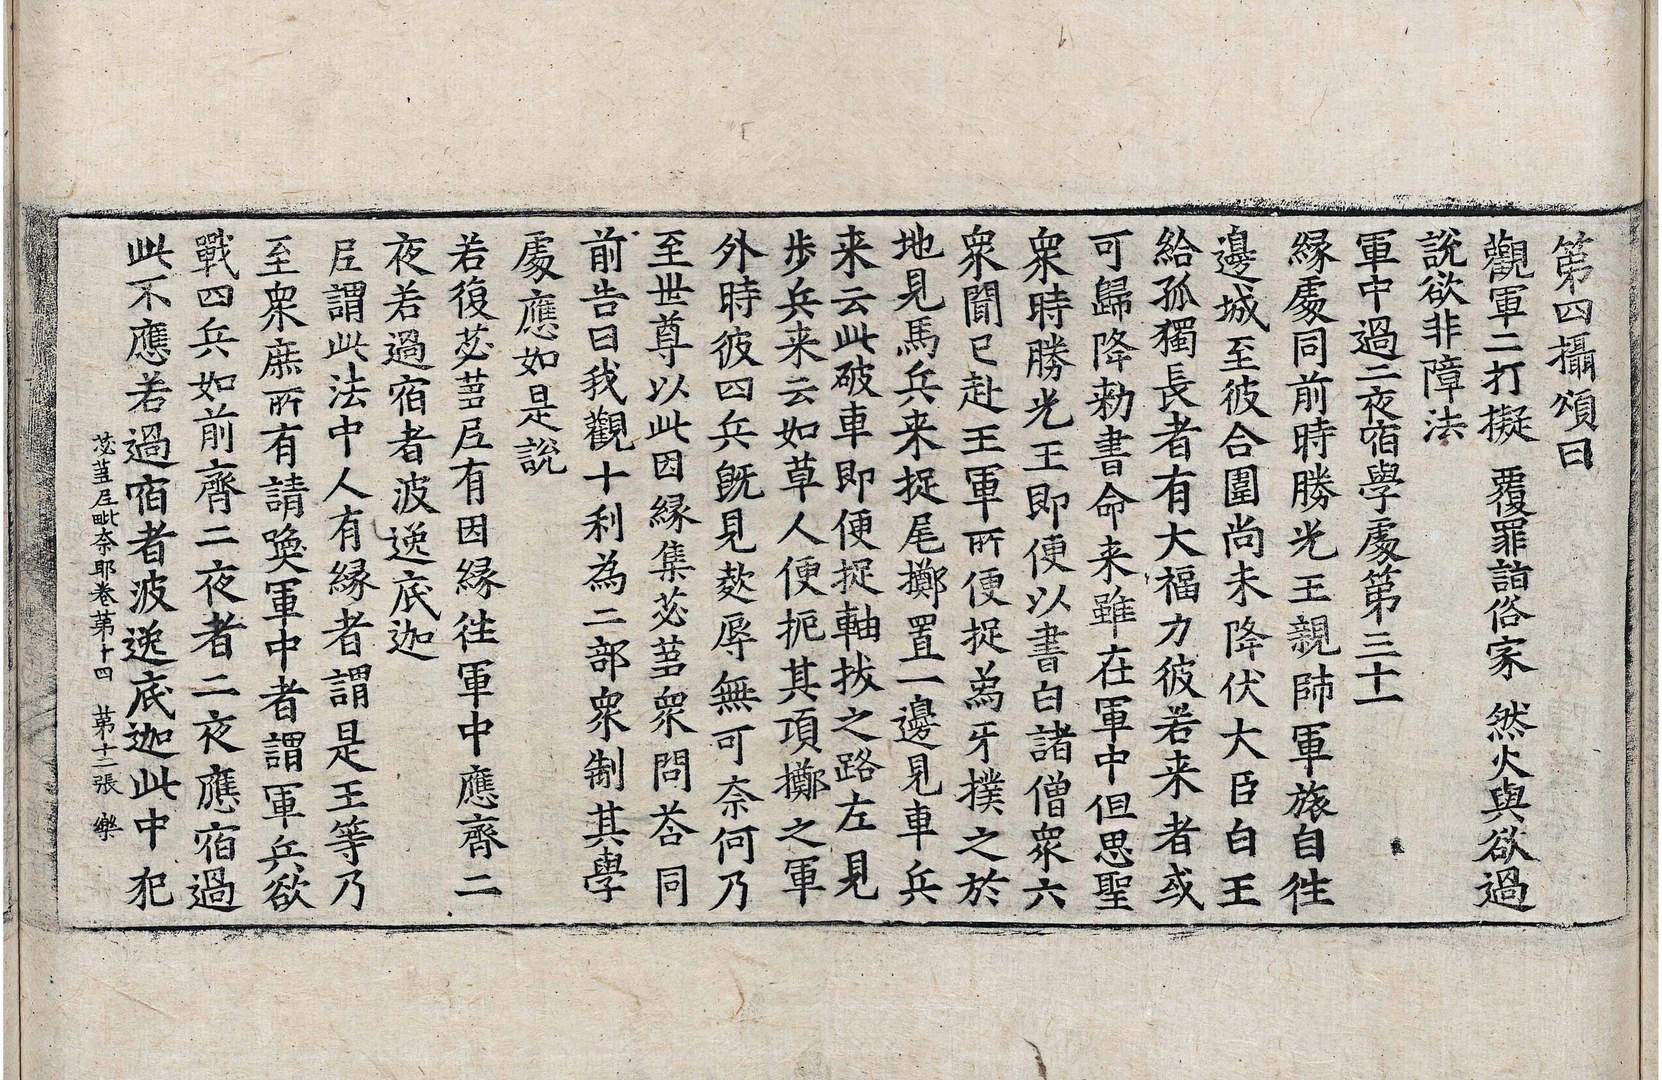 第四攝頌曰
觀軍二打擬　覆罪詣俗家　然火與欲過
說欲非障法
軍中過二夜宿學處第三十一
緣處同前時勝光王親帥軍旅自往
邊城至彼合圍尚未降伏大臣白王
給孤獨長者有大福力彼若来者或
可歸降勑書命来雖在軍中但思聖
衆時勝光王即便以書白諸僧衆六
衆聞已赴王軍所便捉為牙撲之於
地見馬兵来捉尾擲置一邊見車兵
来云此破車即便捉軸拔之路左見
步兵来云如草人便扼其項擲之軍
外時彼四兵旣見欺辱無可奈何乃
至世尊以此因緣集苾芻衆問荅同
前告曰我觀十利為二部衆制其學
處應如是說
若復苾芻尼有因緣往軍中應齊二
夜若過宿者波逸底迦
尼謂此法中人有緣者謂是王等乃
至衆庶所有請喚軍中者謂軍兵欲
戰四兵如前齊二夜者二夜應宿過
此不應若過宿者波逸底迦此中犯
苾芻尼毗奈耶卷第十四　第十二張　樂